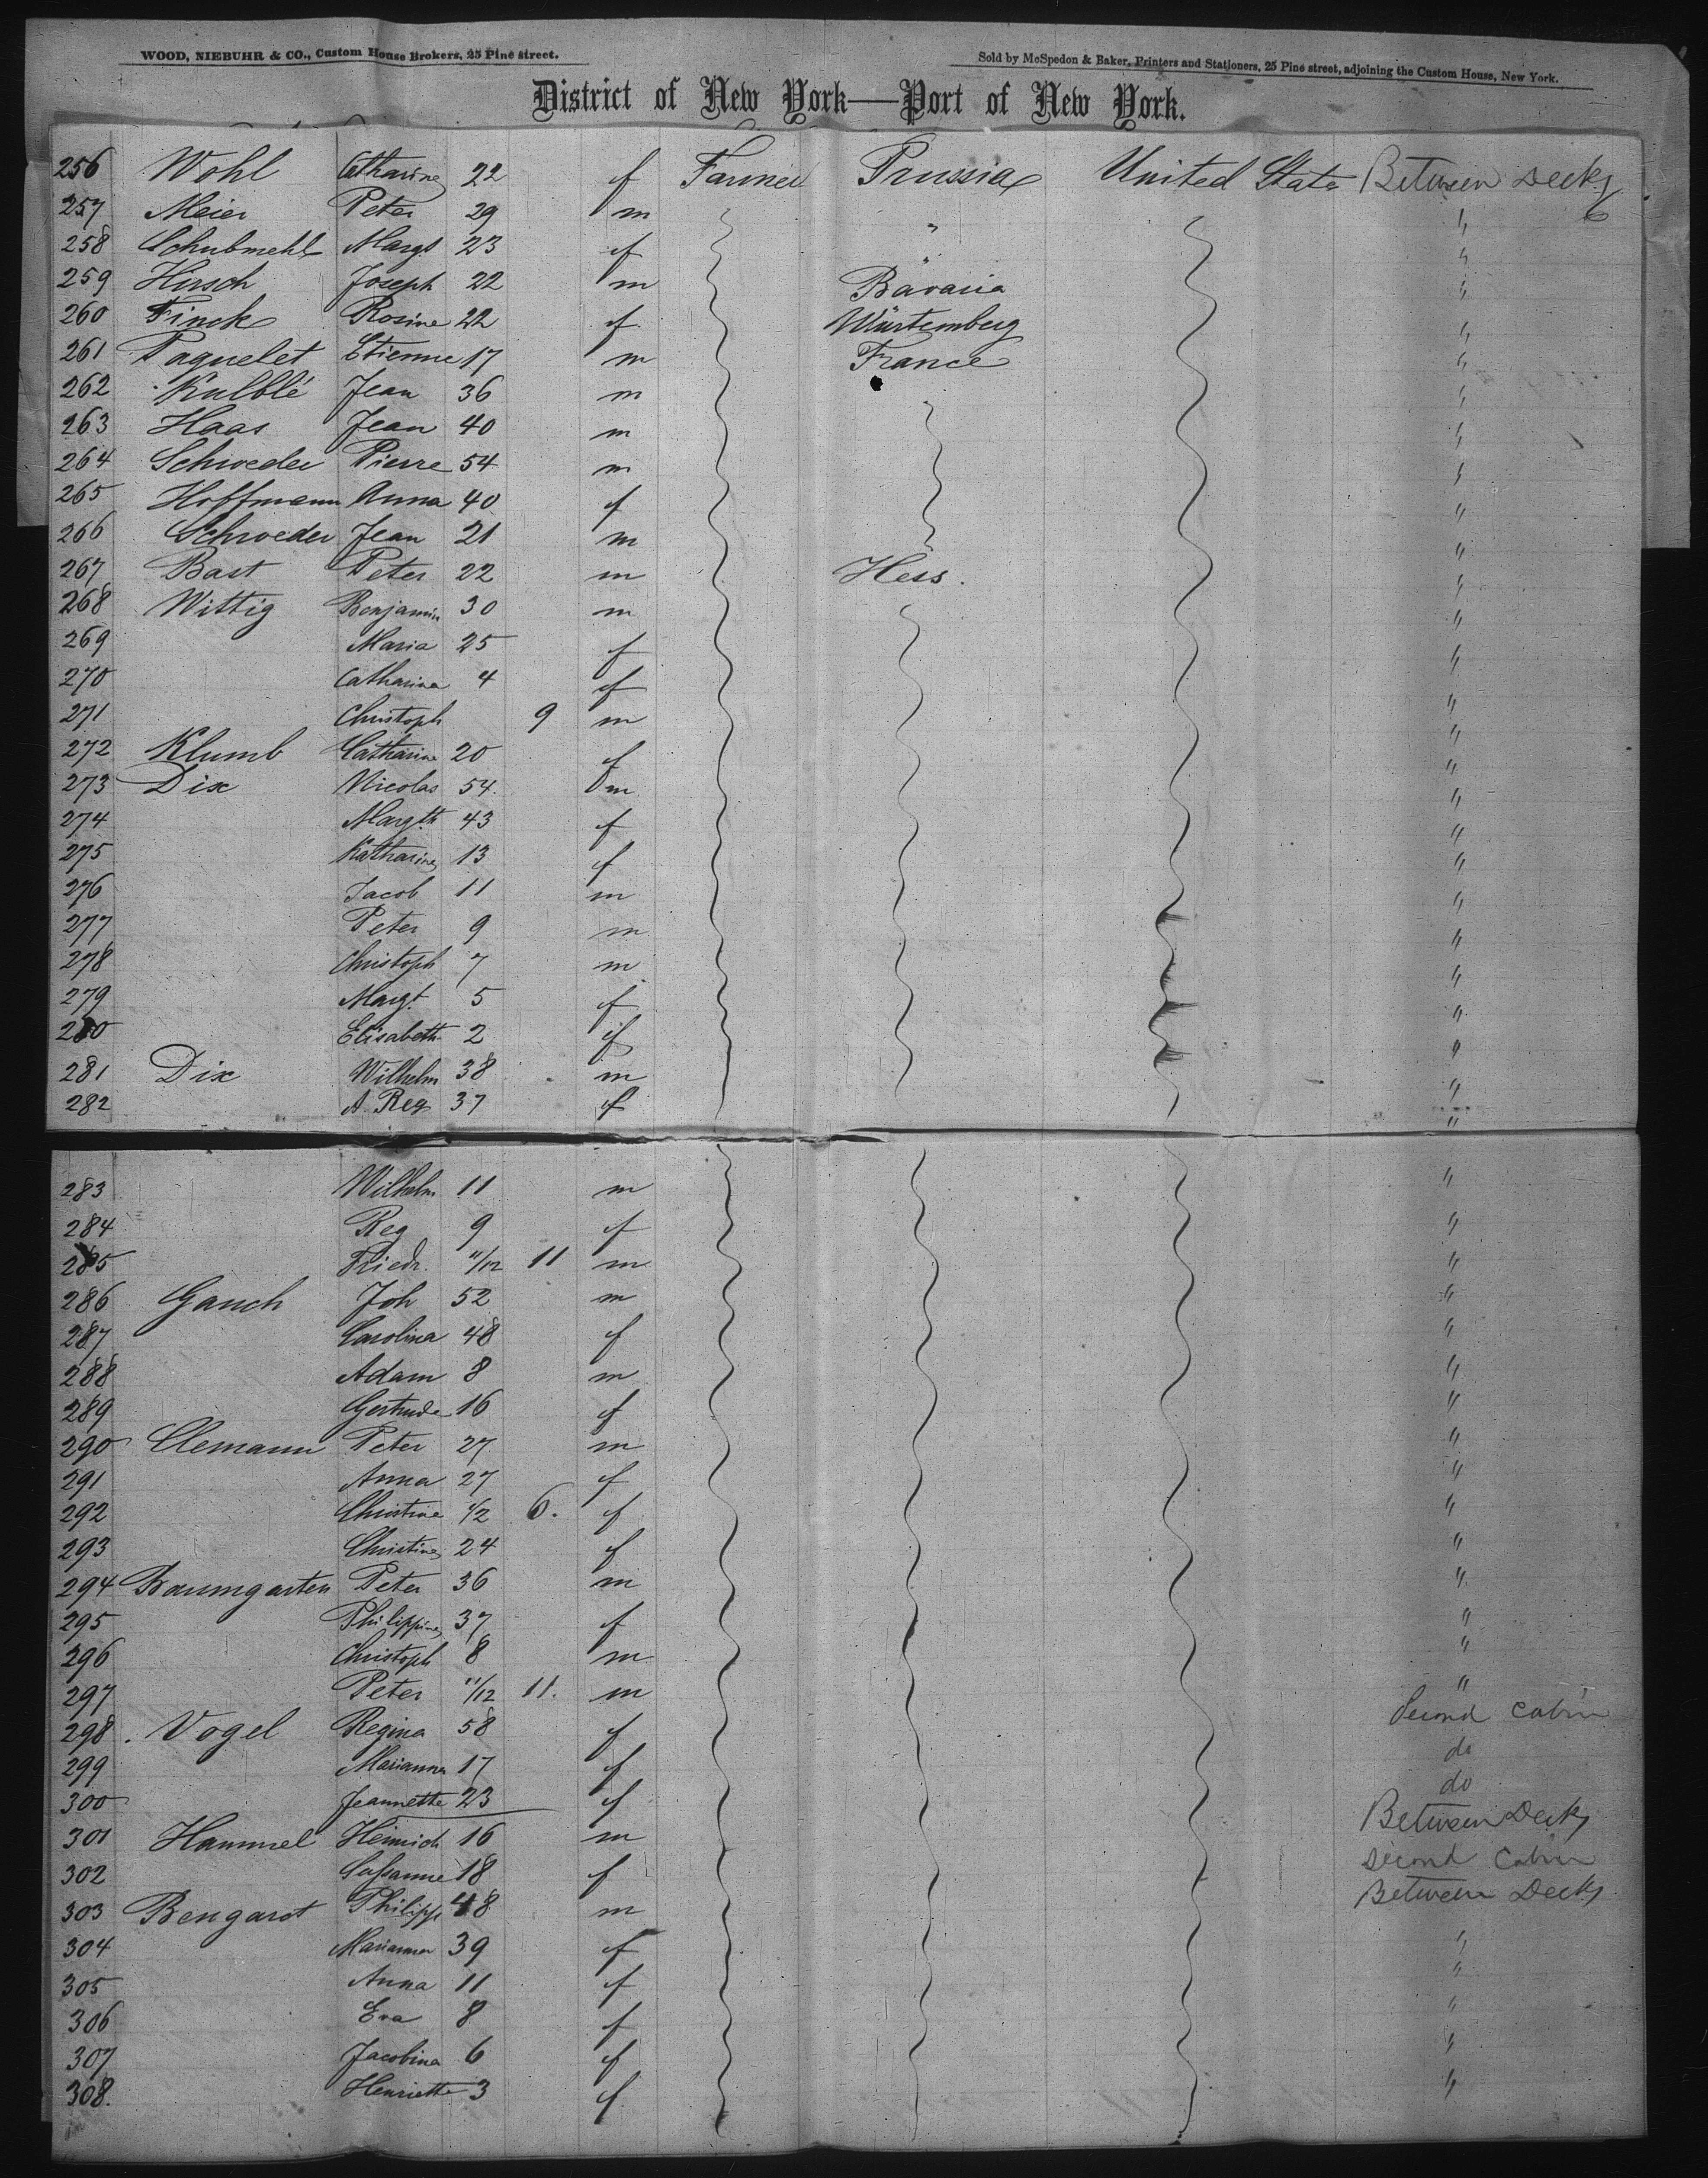 WOOD, NIEBUHR & CO., Custom House Brokers, 25 Pine street.
Sold by McSpedon & Baker, Printers and Stationers, 25 Pine street, adjoining the Custom House, New York.
District of New York—Port of New York.
256 Wohl Catharine 22 f Farmer Prussia United States Between Decks
257 Meier Peter 29 m " "
258 Schubmehl Margt 23 f " "
259 Hirsch Joseph 22 m Bavaria "
260 Finck Rosine 22 f Würtemberg "
261 Paquelet Etienne 17 m France "
262 Kulblé Jean 36 m "
263 Haas Jean 40 m "
264 Schroeder Pierre 54 m "
265 Hoffmann Anna 40 f "
266 Schroeder Jean 21 m "
267 Bast Peter 22 m Hess. "
268 Wittig Benjamin 30 m "
269 Maria 25 f "
270 Catharina 4 f "
271 Christoph 9 m "
272 Klumb Catharine 20 f "
273 Dix Nicolas 54 m "
274 Margth 43 f "
275 Katharine 13 f "
276 Jacob 11 m "
277 Peter 9 m "
278 Christoph 7 m "
279 Margt. 5 f "
280 Elisabeth 2 f "
281 Dix Wilhelm 38 m "
282 A. Reg 37 f "
283 Wilhelm 11 m "
284 Reg 9 f "
285 Friedr. 11/12 11 m "
286 Gauch Joh 52 m "
287 Carolina 48 f "
288 Adam 8 m "
289 Gertrude 16 f "
290 Clemann Peter 27 m "
291 Anna 27 f "
292 Christine 1/2 6. f "
293 Christine 24 f "
294 Baumgarten Peter 36 m "
295 Philippine 37 f "
296 Christoph 8 m "
297 Peter 11/12 11. m "
298 Vogel Regina 58 f Second Cabin
299 Marianna 17 f do
300 Jeannette 23 f do
301 Hammel Heinrich 16 m Between Decks
302 Susanne 18 f Second Cabin
303 Bengarot Philipp 48 m Between Decks
304 Marianna 39 f "
305 Anna 11 f "
306 Eva 8 f "
307 Jacobina 6 f "
308. Henriette 3 f "